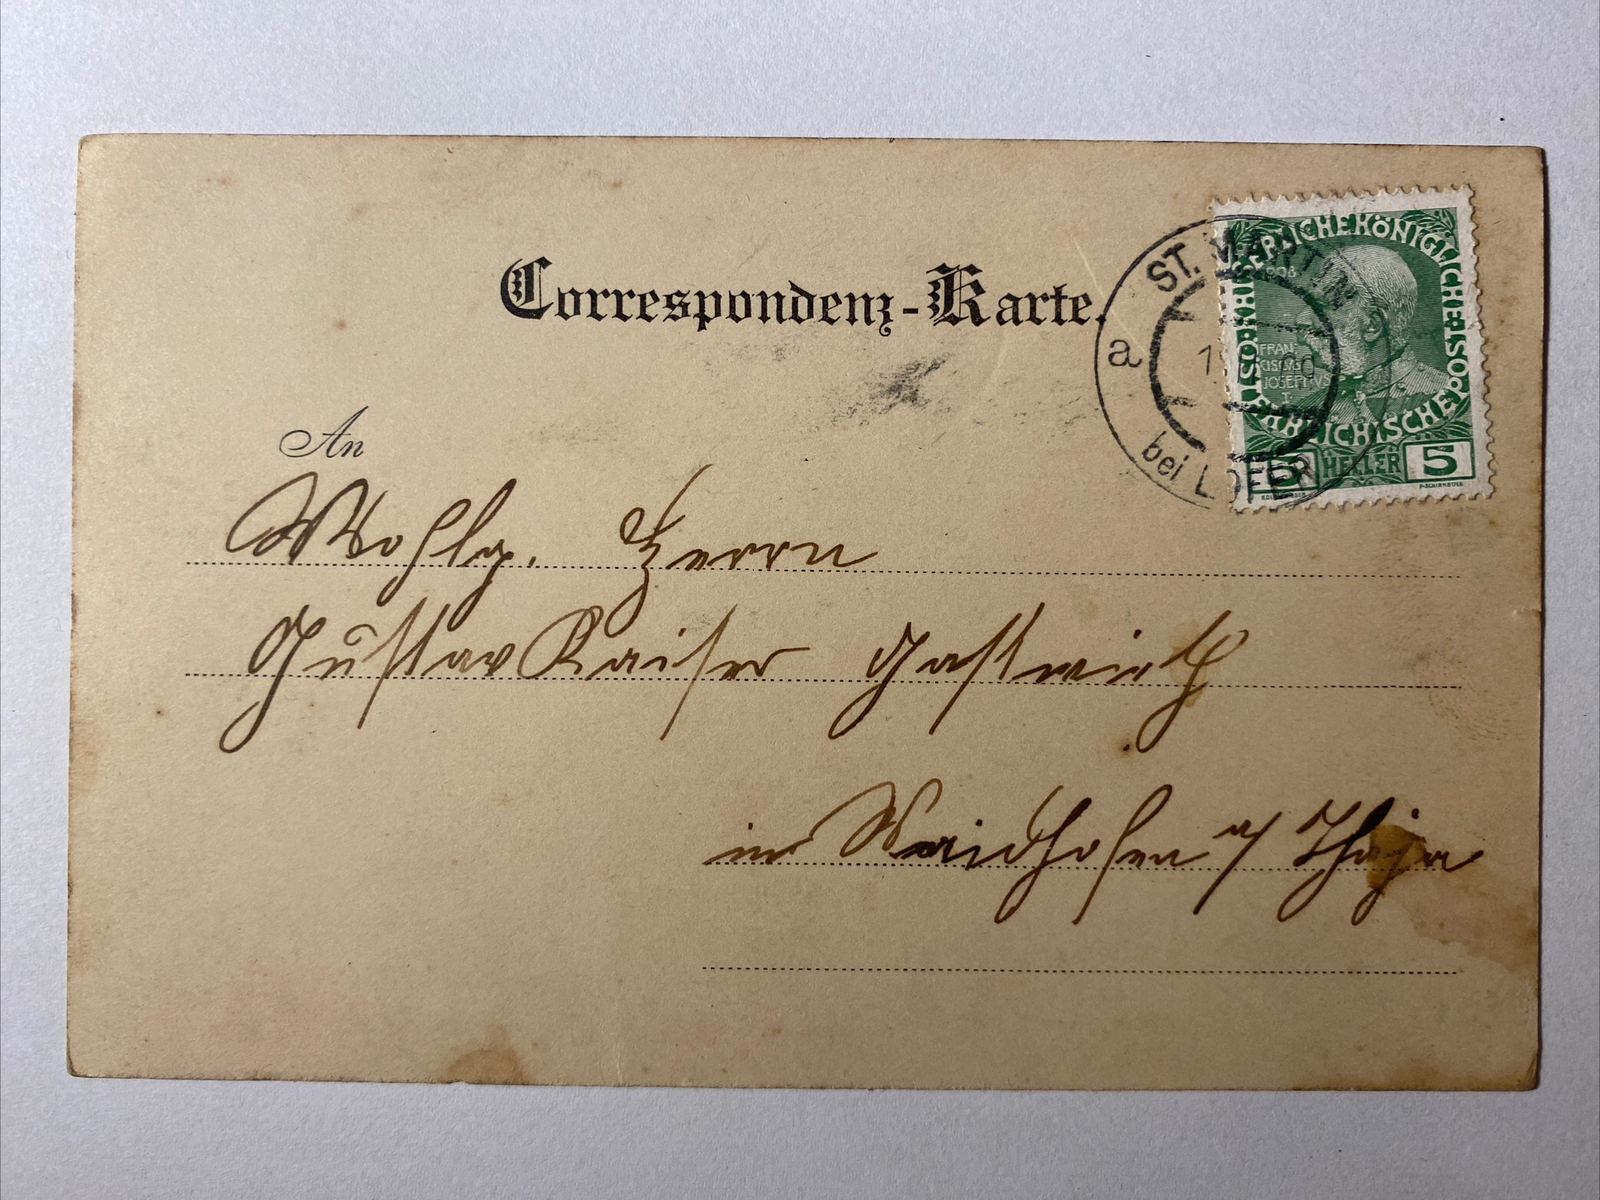 Correspondenz-Karte.
ST. MARTIN
a
bei LOFER
KAISERLICHE KÖNIGLICHE ÖSTERREICHISCHE POST
1908
FRAN
CISCVS
IOSEPHVS
I.
5 HELLER 5
An
Wohlg. Herrn
Gustav Kaiser Gastwirth
in Waidhofen a/ Thaja